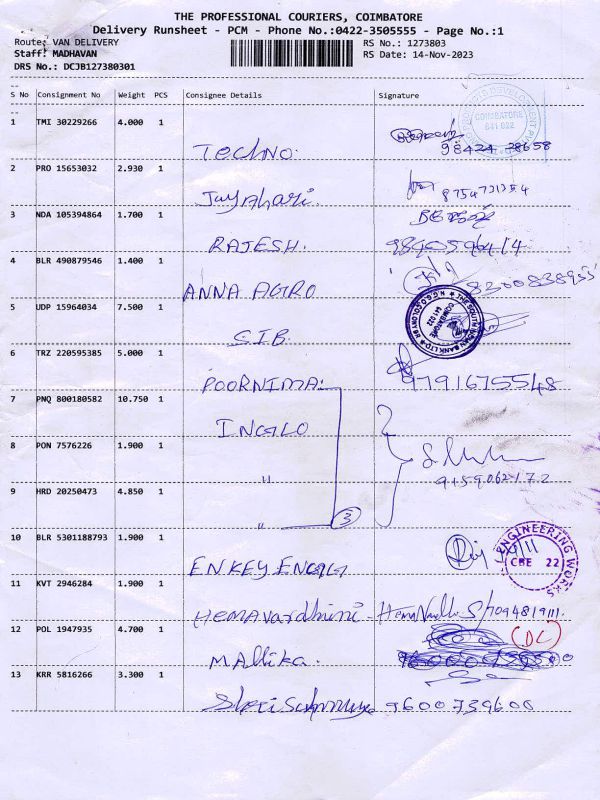 THE PROFESSIONAL COURIERS, COIMBATORE
Delivery Runsheet - PCM - Phone No.:0422-3505555 - Page No.:1
Route: VAN DELIVERY
RS No.: 1273803
Staff: MADHAVAN
RS Date: 14-Nov-2023
DRS No.: DCJB127380301
S No Consignment No Weight PCS Consignee Details Signature
1 TMI 30229266 4.000 1
COIMBATORE
641 022
Techno.
98424 28658
2 PRO 15653032 2.930 1
8754721354
3 NDA 105394864 1.700 1
RAJESH.
4 BLR 490879546 1.400 1
ANNA AGRO
8300838955
5 UDP 15964034 7.500 1
THE SOUTH INDIAN BANK LTD
COIMBATORE
641 022
S.I.B.
6 TRZ 220595385 5.000 1
POORNIMA.
9791675548
7 PNQ 800180582 10.750 1
INGLO
8 PON 7576226 1.900 1
"
9 HRD 20250473 4.850 1
"
3
10 BLR 5301188793 1.900 1
ENGINEERING WORKS
CBE 22
ENKEY ENGG
11 KVT 2946284 1.900 1
Hemavardhini
12 POL 1947935 4.700 1
(DC)
Mallika.
13 KRR 5816266 3.300 1
9600739600